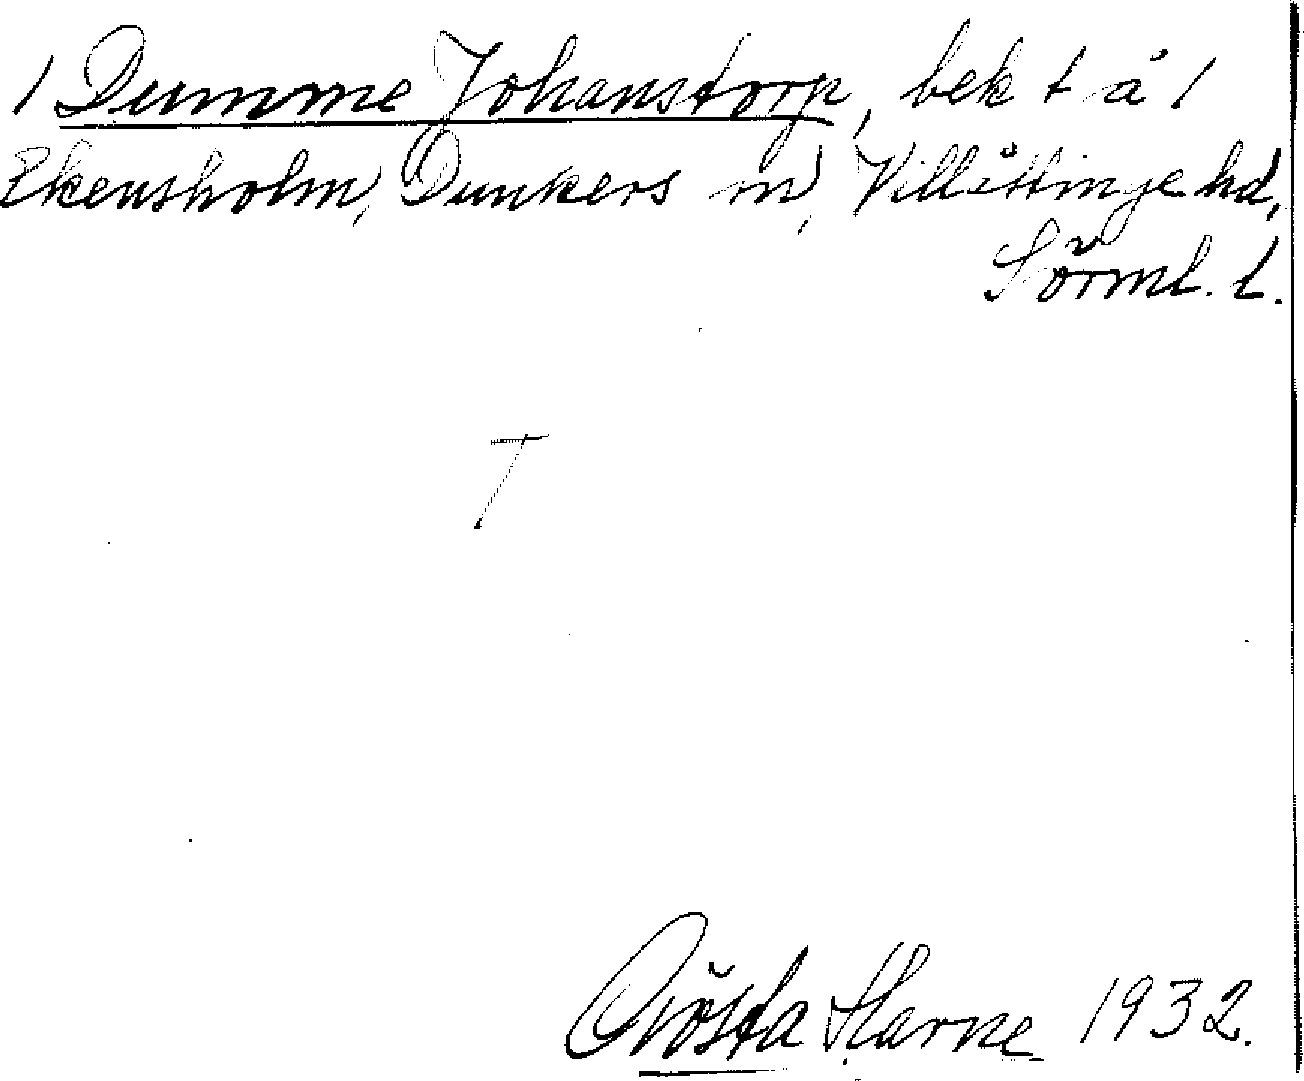 / Dumme Johanstorp, bek t å /
Ekensholm, Dunkers sn, Villåttinge hd,
Sörml. l.
T
Gösta Harne 1932.